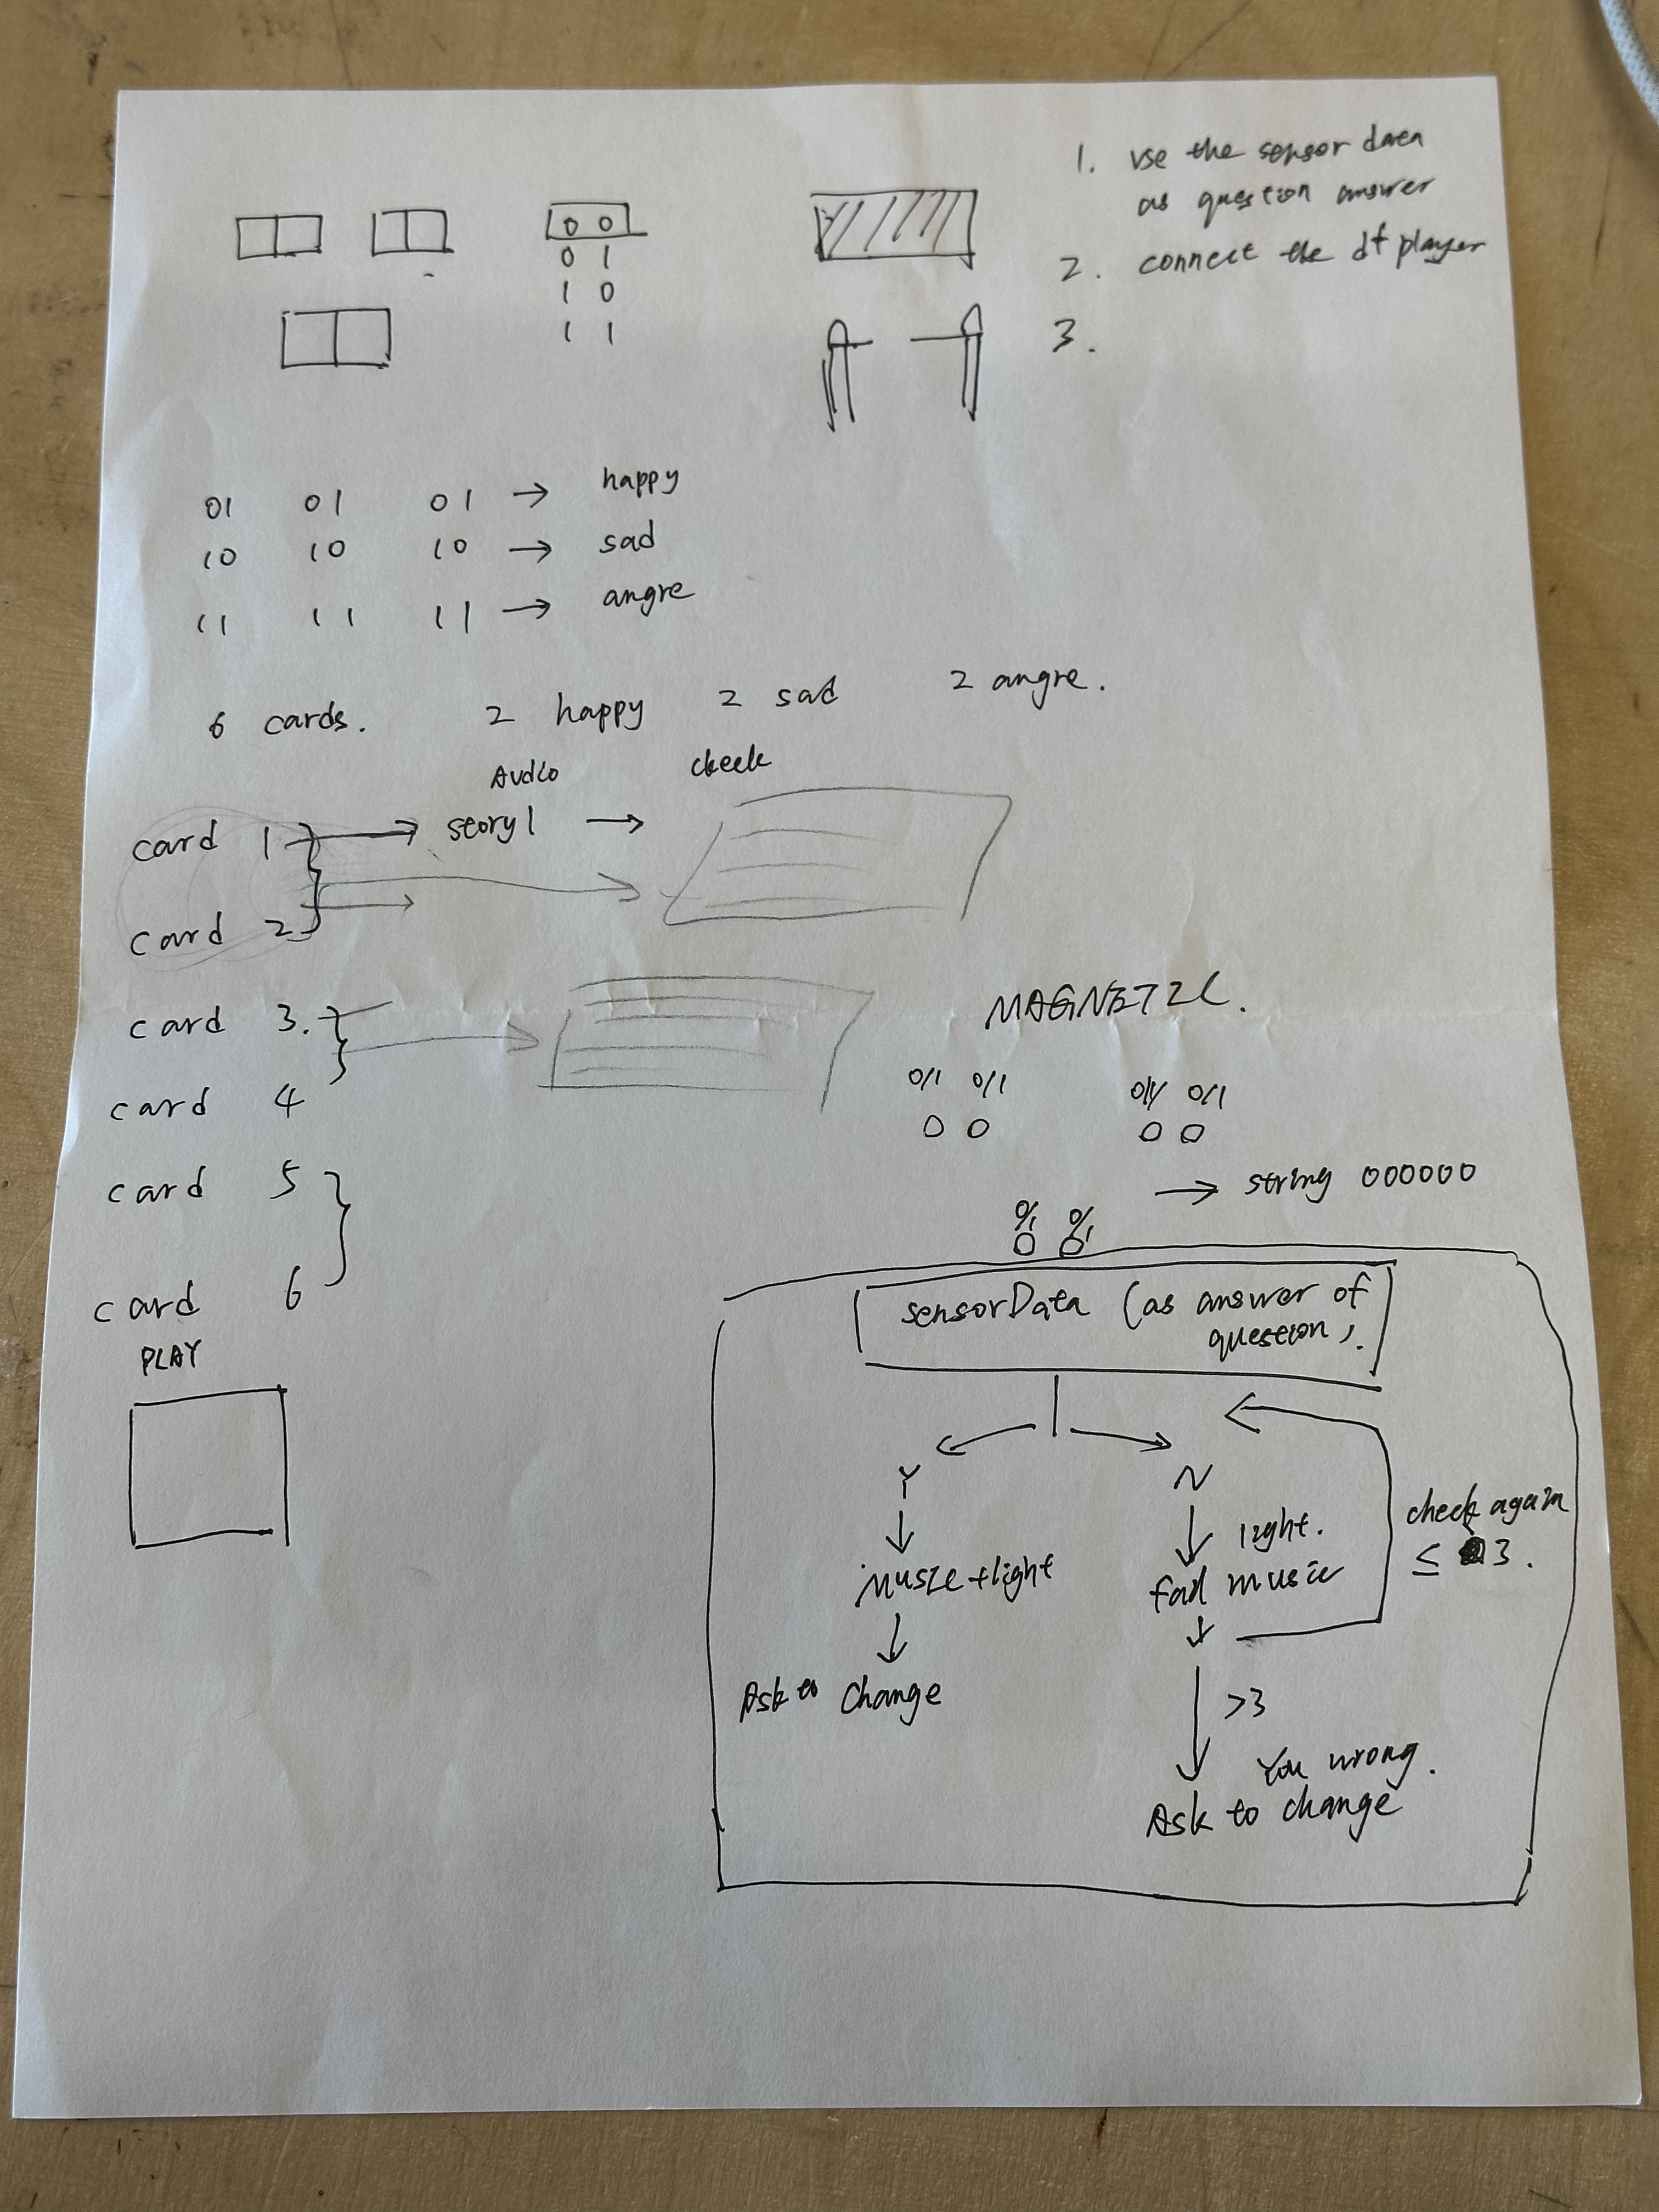 1. use the sensor data
as question answer
2. connect the df player
3.
0 0
0 1
1 0
1 1
01 01 01 → happy
10 10 10 → sad
11 11 11 → angre
6 cards. 2 happy 2 sad 2 angre.
Audio check
card 1 → story1 →
card 2
card 3.
card 4
card 5
card 6
PLAY
MAGNETIC.
0/1 0/1 0/1 0/1
0 0 0 0
→ string 000000
0/1 0/1
0 0
sensorData (as answer of
question).
Y N
light.
music + light fail music
check again
≤ 3.
Ask to change
>3
You wrong.
Ask to change